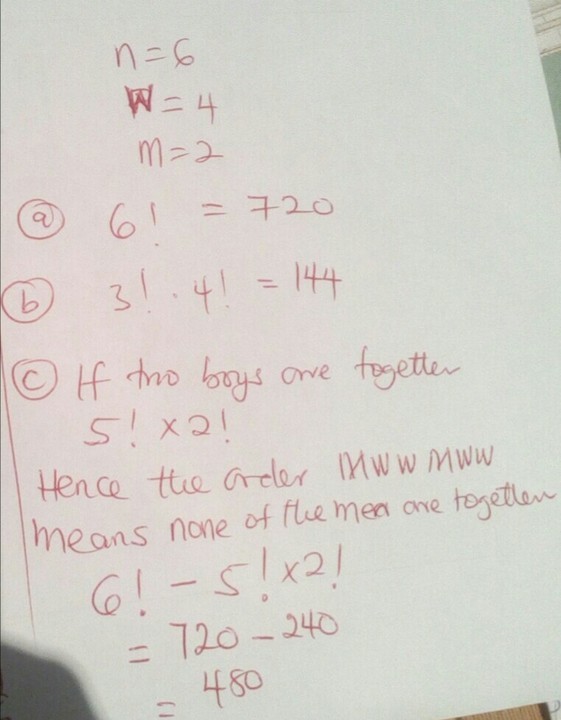 n = 6
W = 4
m = 2
(a) 6! = 720
(b) 3! . 4! = 144
(c) If two boys are together
5! x 2!
Hence the order MWWMWW
means none of the men are together
6! - 5! x 2!
= 720 - 240
= 480